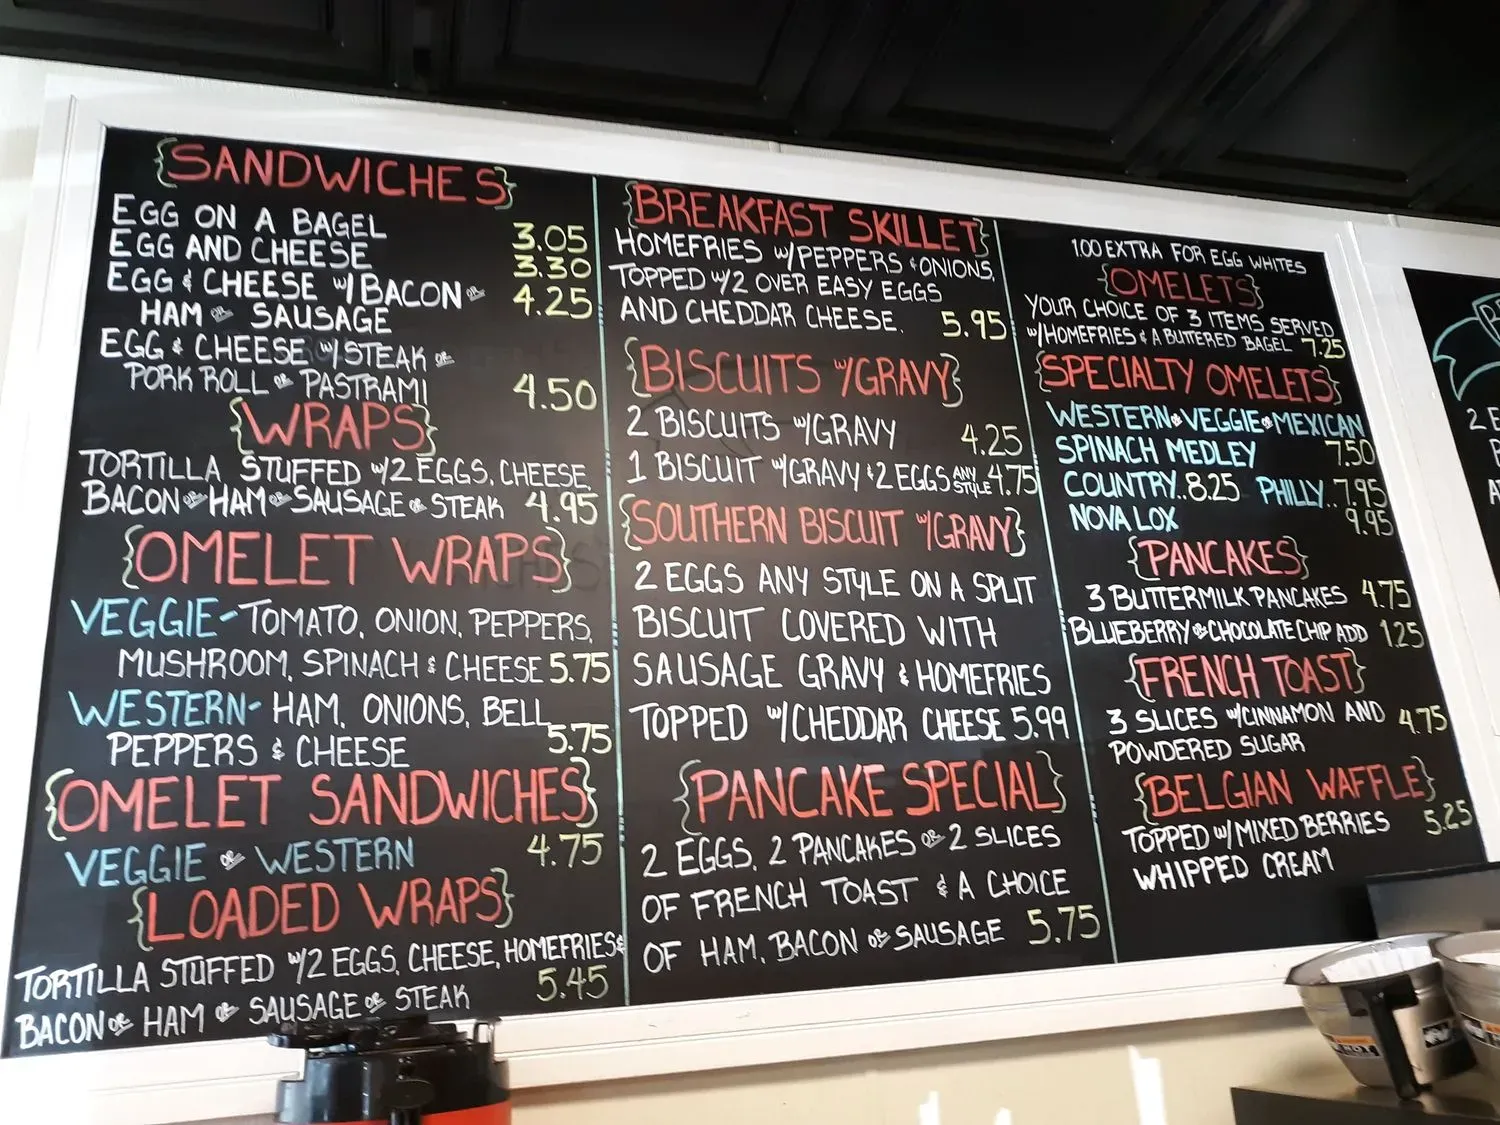 {SANDWICHES}
EGG ON A BAGEL 3.05
EGG AND CHEESE 3.30
EGG & CHEESE W/BACON OR 4.25
HAM OR SAUSAGE
EGG & CHEESE W/STEAK OR
PORK ROLL OR PASTRAMI 4.50
{WRAPS}
TORTILLA STUFFED W/2 EGGS, CHEESE,
BACON OR HAM OR SAUSAGE OR STEAK 4.95
{OMELET WRAPS}
VEGGIE- TOMATO, ONION, PEPPERS,
MUSHROOM, SPINACH & CHEESE 5.75
WESTERN- HAM, ONIONS, BELL
PEPPERS & CHEESE 5.75
{OMELET SANDWICHES}
VEGGIE OR WESTERN 4.75
{LOADED WRAPS}
TORTILLA STUFFED W/2 EGGS, CHEESE, HOMEFRIES &
BACON OR HAM OR SAUSAGE OR STEAK 5.45
{BREAKFAST SKILLET}
HOMEFRIES W/PEPPERS & ONIONS,
TOPPED W/2 OVER EASY EGGS
AND CHEDDAR CHEESE. 5.95
{BISCUITS W/GRAVY}
2 BISCUITS W/GRAVY 4.25
1 BISCUIT W/GRAVY & 2 EGGS ANY STYLE 4.75
{SOUTHERN BISCUIT W/GRAVY}
2 EGGS ANY STYLE ON A SPLIT
BISCUIT COVERED WITH
SAUSAGE GRAVY & HOMEFRIES
TOPPED W/CHEDDAR CHEESE 5.99
{PANCAKE SPECIAL}
2 EGGS, 2 PANCAKES OR 2 SLICES
OF FRENCH TOAST & A CHOICE
OF HAM, BACON OR SAUSAGE 5.75
1.00 EXTRA FOR EGG WHITES
{OMELETS}
YOUR CHOICE OF 3 ITEMS SERVED
W/HOMEFRIES & A BUTTERED BAGEL 7.25
{SPECIALTY OMELETS}
WESTERN OR VEGGIE OR MEXICAN
SPINACH MEDLEY 7.50
COUNTRY..8.25 PHILLY..7.95
NOVA LOX 9.95
{PANCAKES}
3 BUTTERMILK PANCAKES 4.75
BLUEBERRY OR CHOCOLATE CHIP ADD 1.25
{FRENCH TOAST}
3 SLICES W/CINNAMON AND 4.75
POWDERED SUGAR
{BELGIAN WAFFLE}
TOPPED W/MIXED BERRIES 5.25
WHIPPED CREAM
2 E